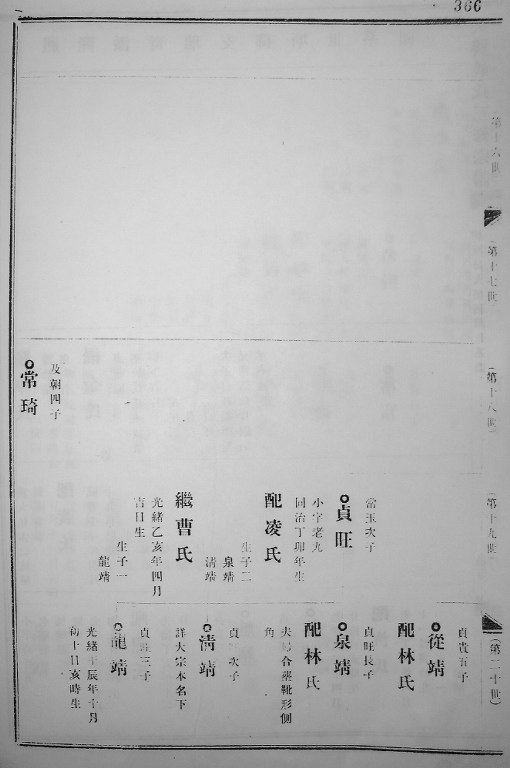 366
第十六世
第十七世
第十八世
常琦
及朝四子
第十九世
常玉次子
貞旺
小字老九
同治丁卯年生
配凌氏
生子二
泉靖
清靖
繼曹氏
光緒乙亥年四月
吉日生
生子一
龍靖
第二十世
貞貴五子
從靖
配林氏
貞旺長子
泉靖
配林氏
夫婦合塟靴形側
角
貞 次子
清靖
詳大宗本名下
貞旺三子
龍靖
光緒 辰年十月
初十日亥時生